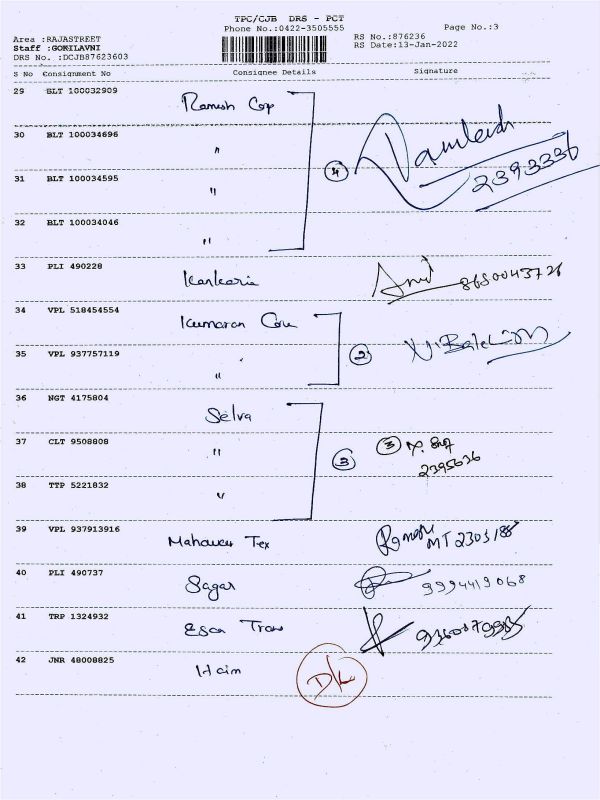 TPC/CJB DRS - PCT
Phone No.:0422-3505555
Page No.:3
Area :RAJASTREET
RS No.:876236
Staff :GOKILAVNI
RS Date:13-Jan-2022
DRS No. :DCJB87623603
S No Consignment No Consignee Details Signature
29 BLT 100032909 Ramesh Cop
30 BLT 100034696 "
31 BLT 100034595 "
4
2393336
32 BLT 100034046 "
33 PLI 490228 Kankaria
34 VPL 518454554 Kumaran
35 VPL 937757119 "
2
36 NGT 4175804 Selva
37 CLT 9508808 "
3 3
2395636
38 TTP 5221832 "
39 VPL 937913916 Mahaveer Tex
40 PLI 490737 Sagar 9994419068
41 TRP 1324932
42 JNR 48008825